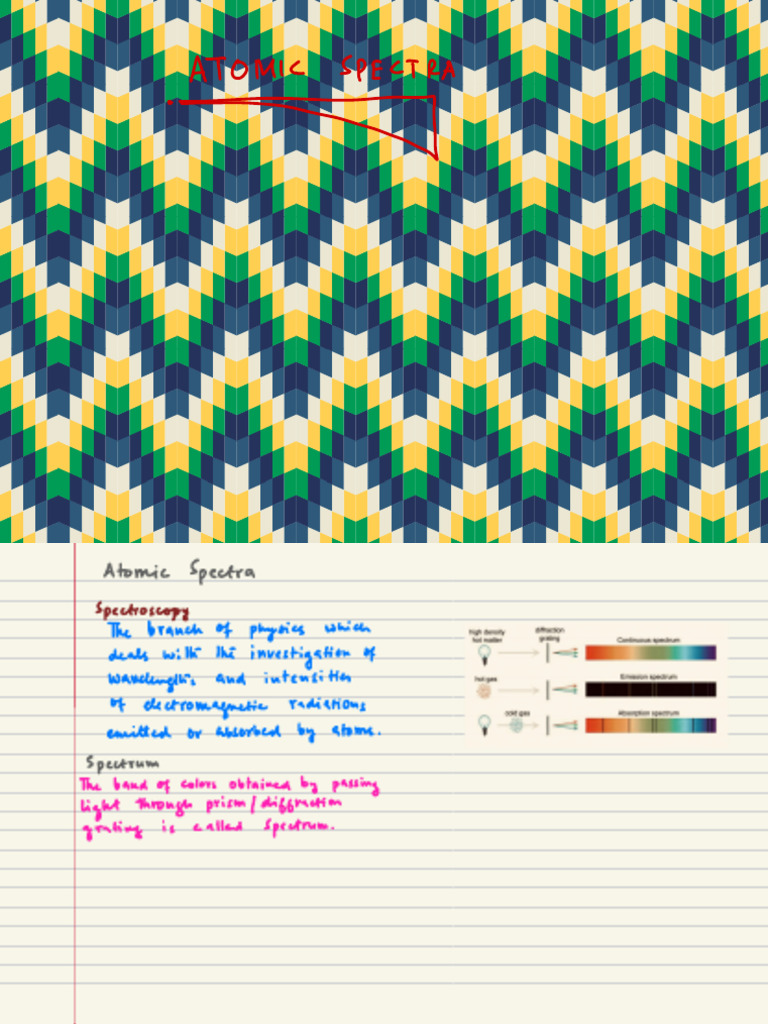 ATOMIC SPECTRA
Atomic Spectra
Spectroscopy
The branch of physics which
deals with the investigation of
wavelengths and intensities
of electromagnetic radiations
emitted or absorbed by atoms.
high density
hot matter
diffraction
grating
Continuous spectrum
hot gas
Emission spectrum
cold gas
Absorption spectrum
Spectrum
The band of colors obtained by passing
light through prism/diffraction
grating is called Spectrum.